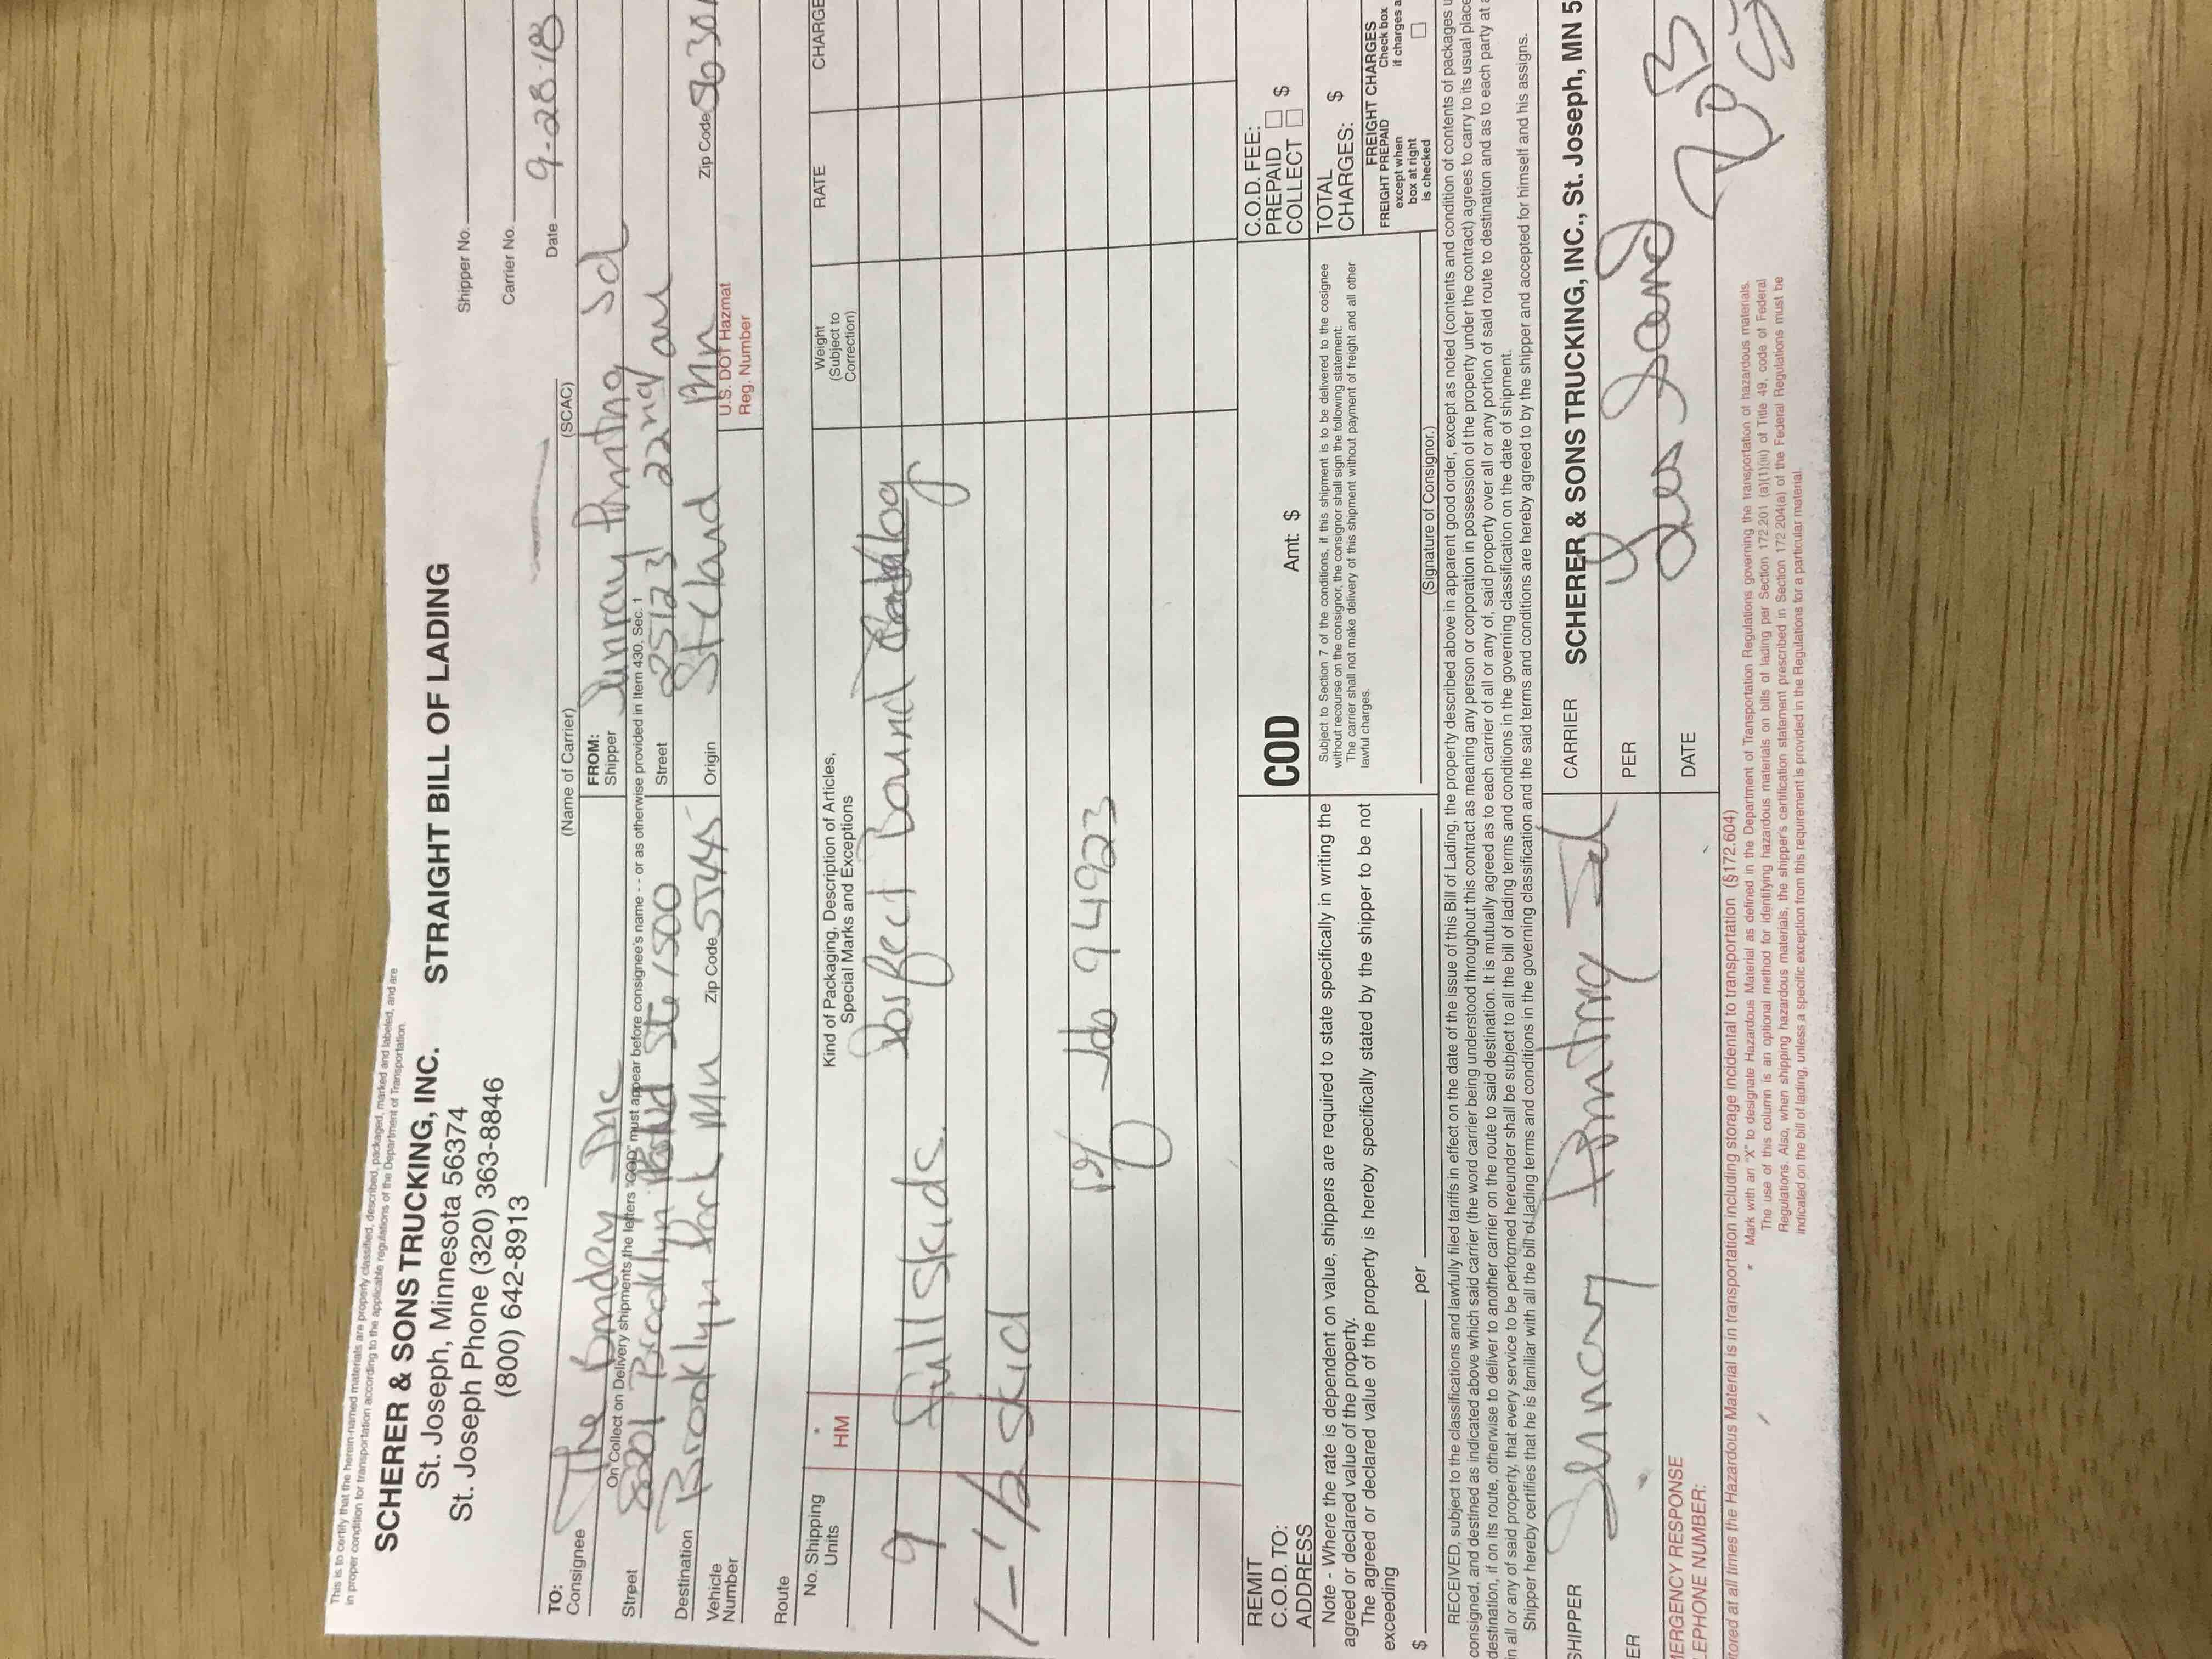 This is to certify that the herein-named materials are properly classified, described, packaged, marked and labeled, and are
in proper condition for transportation according to the applicable regulations of the Department of Transportation.
SCHERER & SONS TRUCKING, INC. STRAIGHT BILL OF LADING
St. Joseph, Minnesota 56374
St. Joseph Phone (320) 363-8846
(800) 642-8913
Shipper No.
Carrier No.
Date 9-28-18
(Name of Carrier) (SCAC)
TO:
Consignee The Bindery Inc
FROM:
Shipper Sunray Printing Sol
On "Collect on Delivery shipments the letters "COD" must appear before consignee's name - - or as otherwise provided in Item 430, Sec. 1
Street 8201 Brooklyn Blvd Ste 1500
Street 25123 22nd ave
Destination Brooklyn Park Mn Zip Code 55445
Origin St Cloud Mn Zip Code 5630
Vehicle
Number
U.S. DOT Hazmat
Reg. Number
Route
No. Shipping
Units
*
HM
Kind of Packaging, Description of Articles,
Special Marks and Exceptions
Weight
(Subject to
Correction)
RATE
CHARGE
Perfect Bound
9 full skids.
1 - 1/2 skid
Job 944923
REMIT
C.O.D. TO:
ADDRESS
COD Amt: $
C.O.D. FEE:
PREPAID
COLLECT $
Note - Where the rate is dependent on value, shippers are required to state specifically in writing the
agreed or declared value of the property.
The agreed or declared value of the property is hereby specifically stated by the shipper to be not
exceeding
$ per
Subject to Section 7 of the conditions, if this shipment is to be delivered to the cosignee
without recourse on the consignor, the consignor shall sign the following statement:
The carrier shall not make delivery of this shipment without payment of freight and all other
lawful charges.
(Signature of Consignor.)
TOTAL
CHARGES: $
FREIGHT CHARGES
FREIGHT PREPAID
except when
box at right
is checked
Check box
if charges a
RECEIVED, subject to the classifications and lawfully filed tariffs in effect on the date of the issue of this Bill of Lading, the property described above in apparent good order, except as noted (contents and condition of contents of packages
consigned, and destined as indicated above which said carrier (the word carrier being understood throughout this contract as meaning any person or corporation in possession of the property under the contract) agrees to carry to its usual place
destination, if on its route, otherwise to deliver to another carrier on the route to said destination. It is mutually agreed as to each carrier of all or any of, said property over all or any portion of said route to destination and as to each party at
in all or any of said property, that every service to be performed hereunder shall be subject to all the bill of lading terms and conditions in the governing classification on the date of shipment.
Shipper hereby certifies that he is familiar with all the bill of lading terms and conditions in the governing classification and the said terms and conditions are hereby agreed to by the shipper and accepted for himself and his assigns.
SHIPPER Sunray Printing Sol
CARRIER SCHERER & SONS TRUCKING, INC., St. Joseph, MN 5
ER
PER
MERGENCY RESPONSE
LEPHONE NUMBER:
DATE
tored at all times the Hazardous Material is in transportation including storage incidental to transportation (§172.604)
* Mark with an "X" to designate Hazardous Material as defined in the Department of Transportation Regulations governing the transportation of hazardous materials.
The use of this column is an optional method for identifying hazardous materials on bills of lading per Section 172.201 (a)(1)(iii) of Title 49, code of Federal
Regulations. Also, when shipping hazardous materials, the shipper's certification statement prescribed in Section 172.204(a) of the Federal Regulations must be
indicated on the bill of lading, unless a specific exception from this requirement is provided in the Regulations for a particular material.